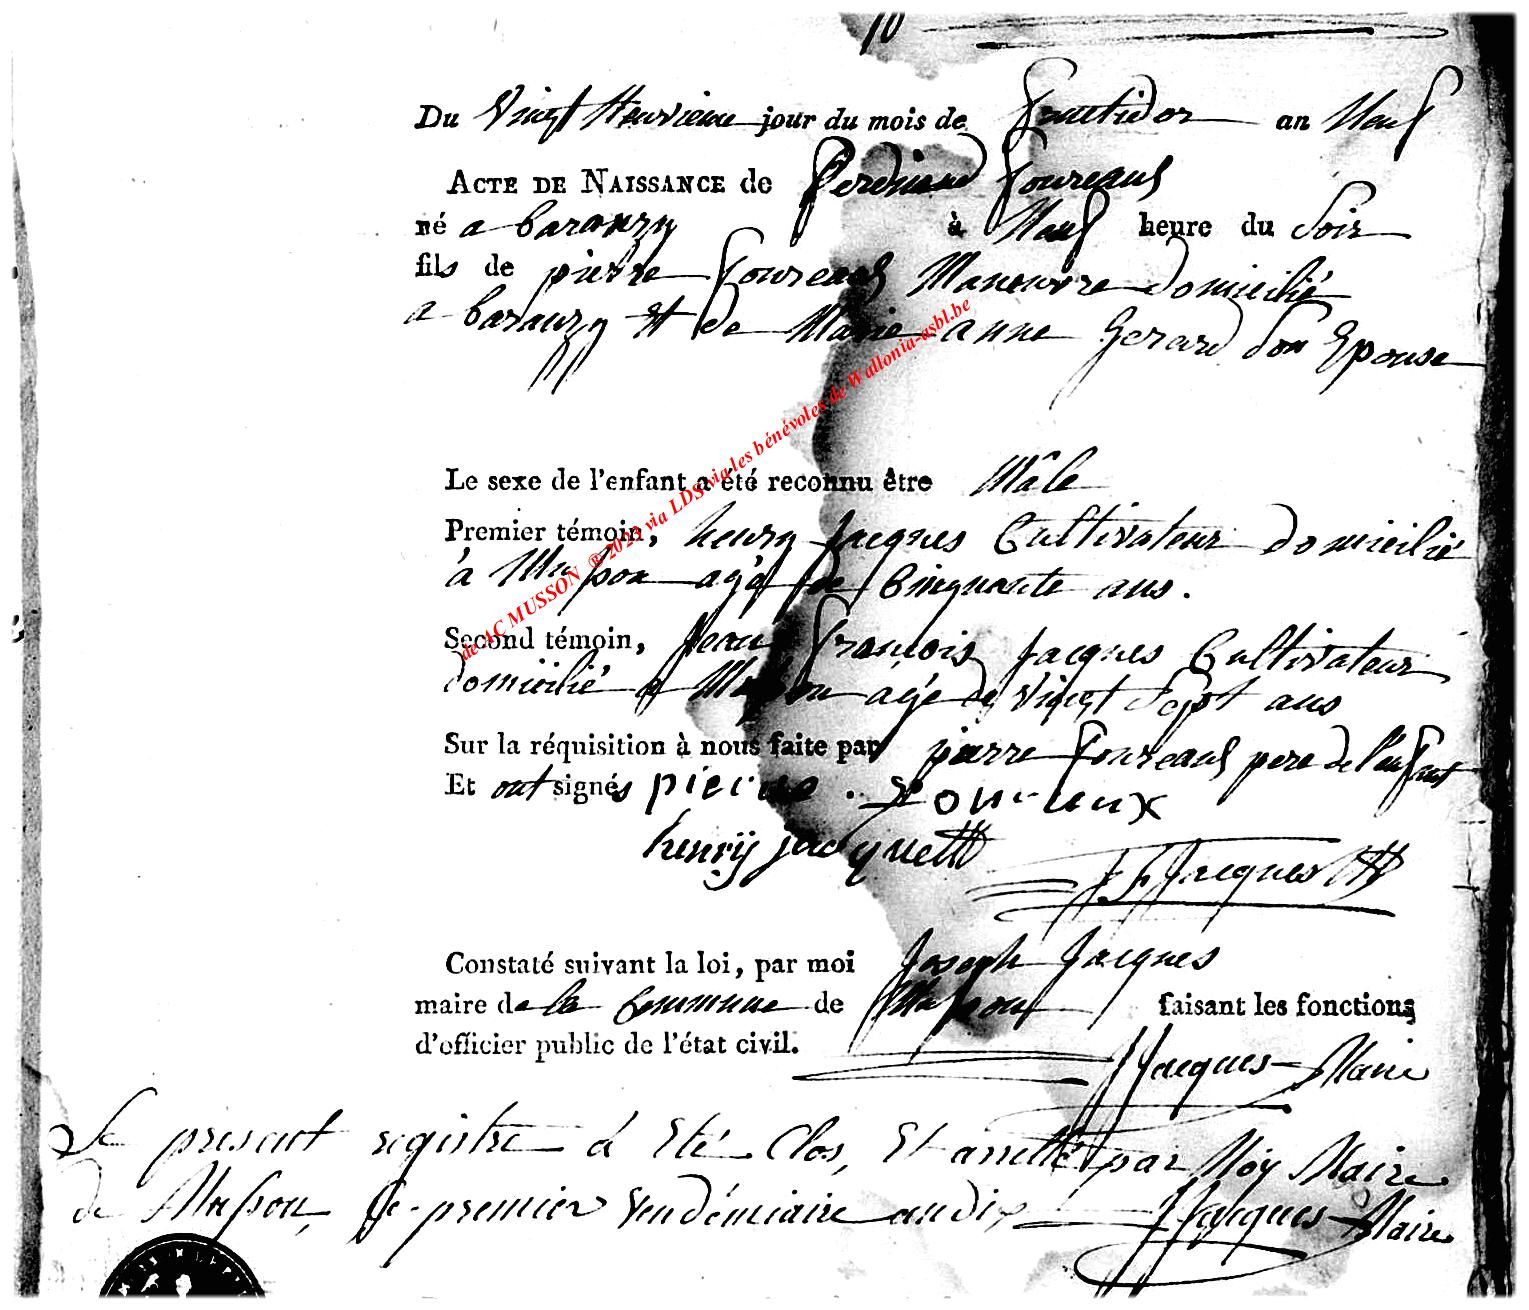 10
Du Vingt Neuvieme jour du mois de fructidor an Neuf
ACTE DE NAISSANCE de Ferdinand foureaux
né a baranzy à Neuf heure du Soir
fils de pierre foureaux Manouvre domicilié
a baranzy Et de Marie anne Gerard Son Epouse
Le sexe de l'enfant a été reconnu être Mâle
Premier témoin, henry Jacques Cultivateur domicilié
à Musson agé de Cinquante ans.
Second témoin, Jean françois Jacques Cultivateur
domicilié a Musson agé de Vingt Sept ans
Sur la réquisition à nous faite par pierre foureaux pere de l'enfant
Et ont signés pierre . foureaux
henrÿ jacquett
JfJacques
Constaté suivant la loi, par moi Joseph Jacques
maire de la Commune de Musson faisant les fonctions
d'officier public de l'état civil.
JJacques Maire
Le present registre à Eté Clos, Et arretté par Moÿ Maire
de Musson, Le premier Vendémiaire an dix JJacques Maire
de AC MUSSON ® 2023 via LDS via les bénévoles de Wallonia-asbl.be